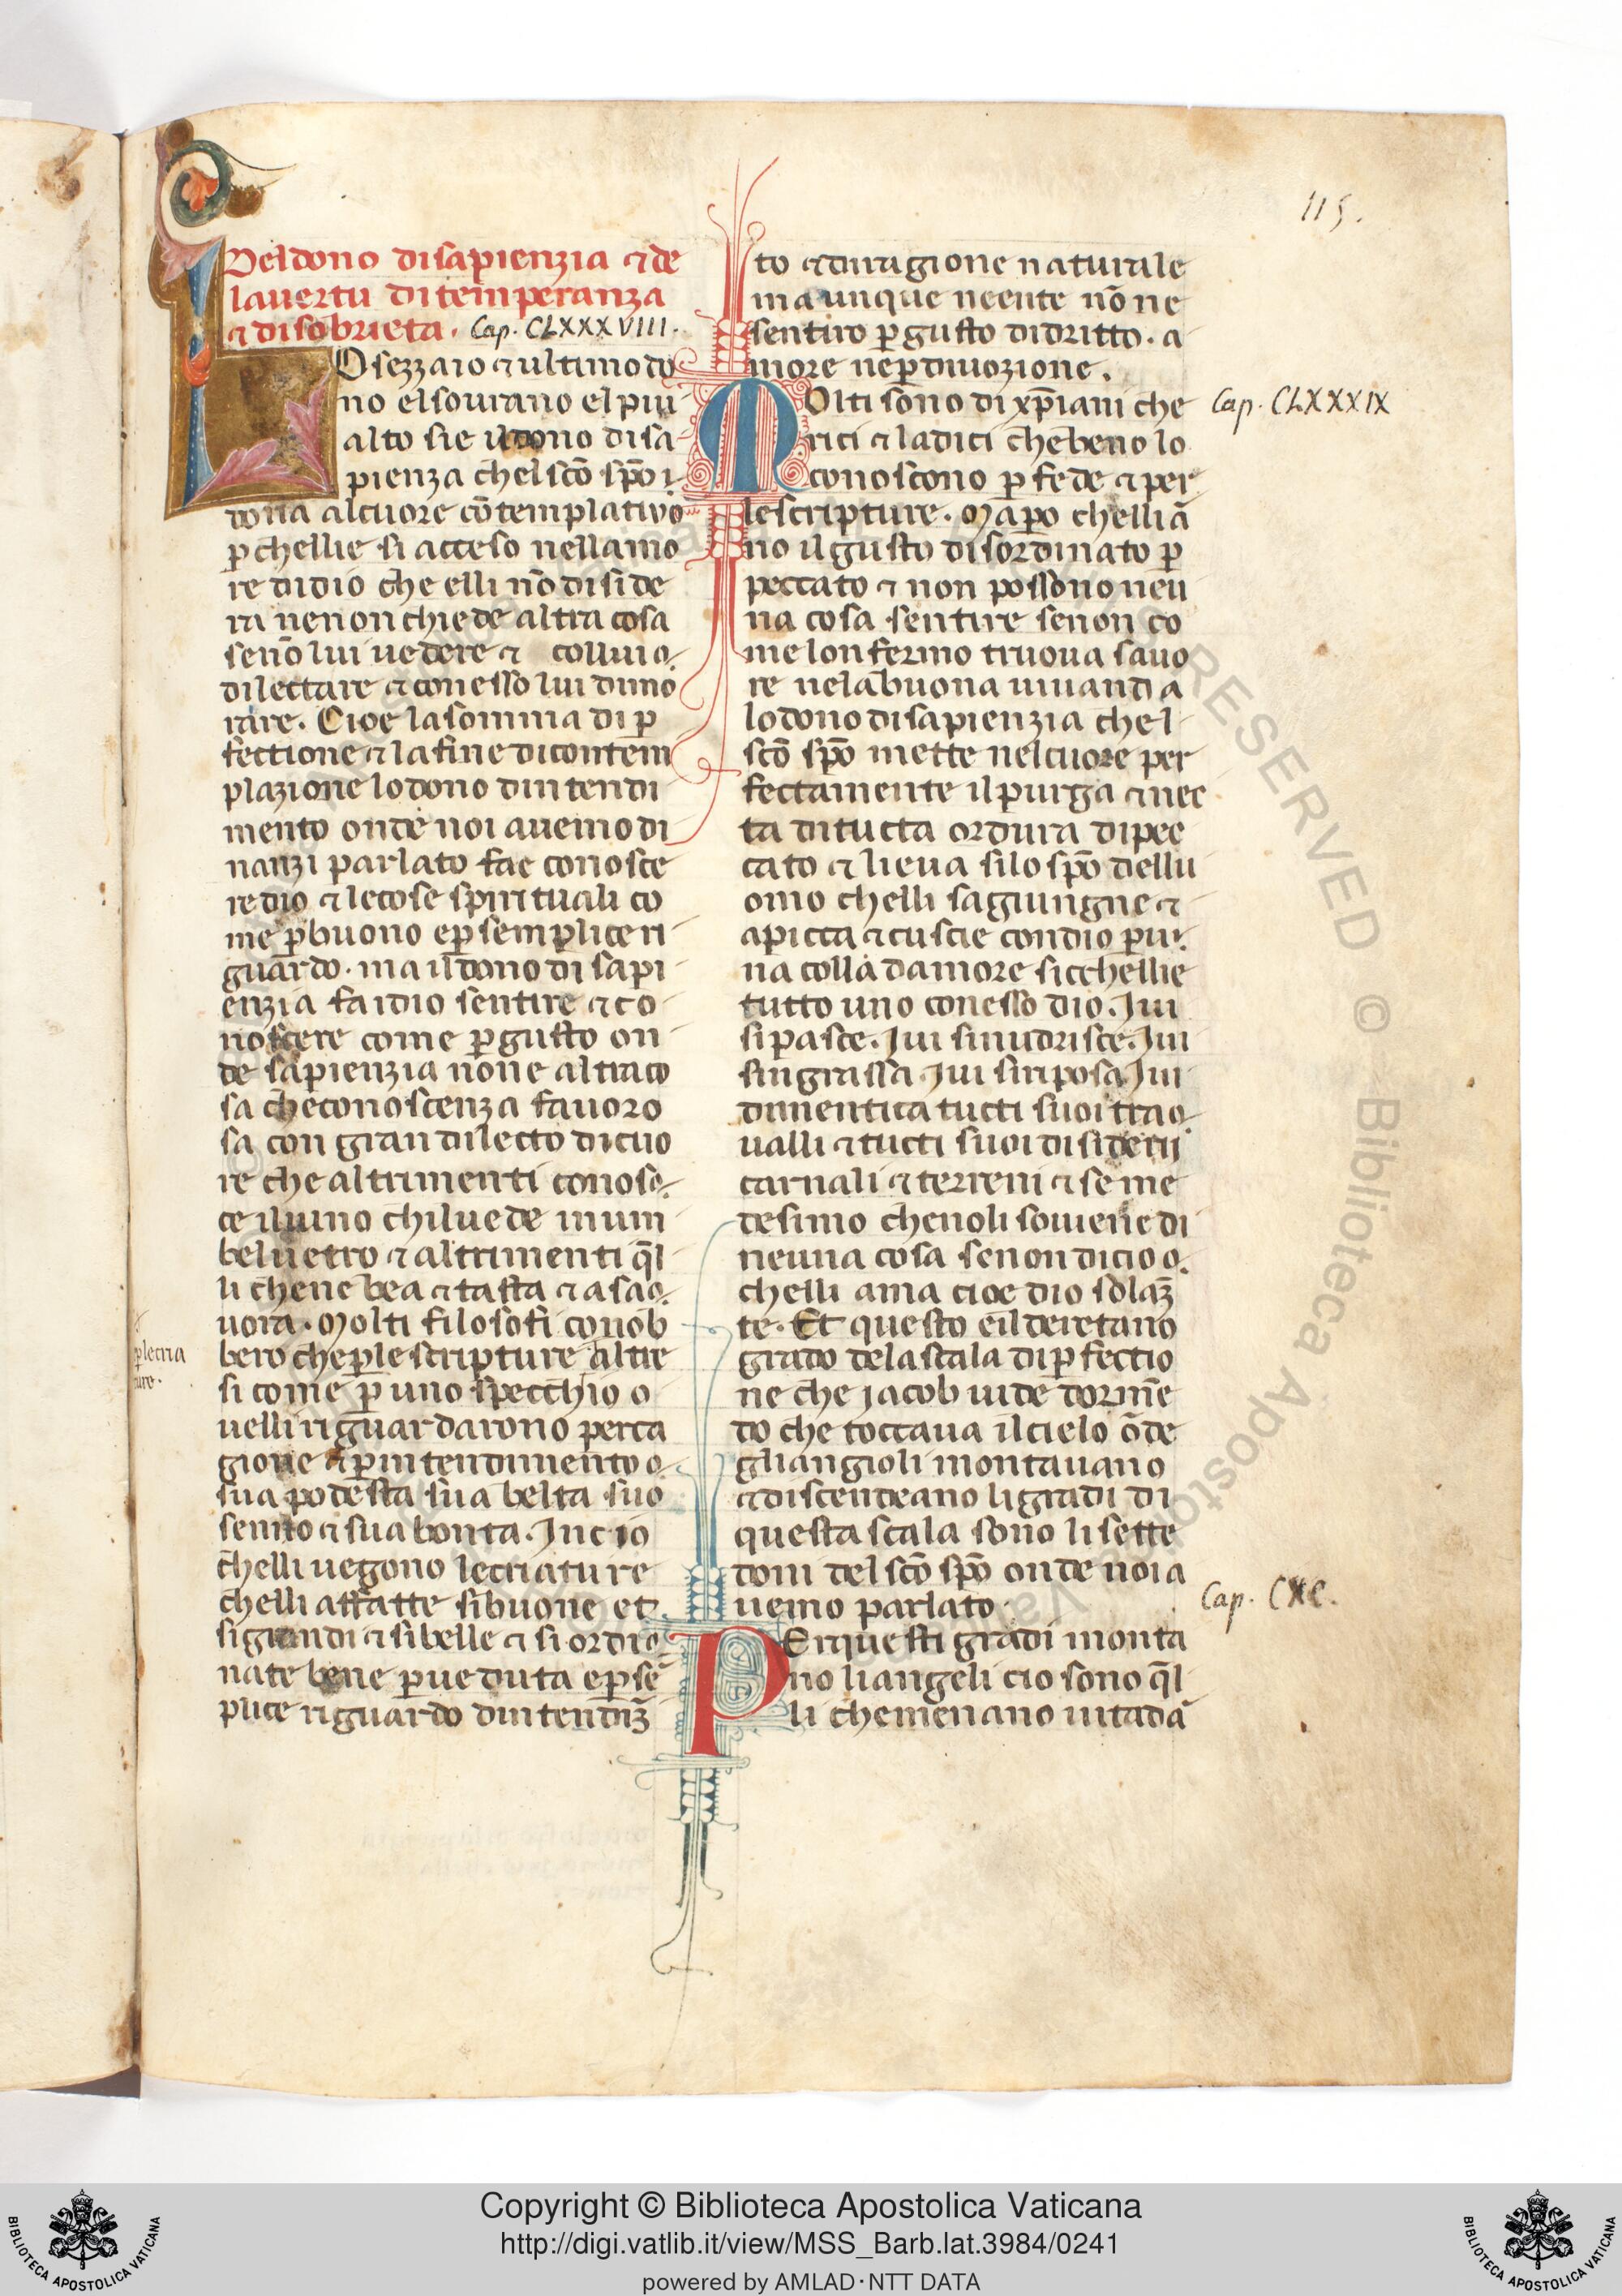 115.
Del dono disapienzia ⁊ de
lauertu ditemperanza
⁊ disobrieta. Cap. CLXXXVIII.
LO sezzaio ⁊ ultimo do
no elsourano elpiu
alto sie ildono disa
pienza chelsc̄o sp̄o i
dona alcuore cōtemplativo
ꝑchellie si acceso nellamo
re didio che elli nō diside
ra nenonchiede altra cosa
senō lui uedere ⁊ collui a
dilectare ⁊ conesso lui dimo
rare. Cioe lasomma di ꝑ
fectione ⁊ lafine dicontem
plazione lodono dintendi
mento onde noi auemo di
nanzi parlato fae conosce
re dio ⁊ lecose spirituali co
me ꝑbuono eꝑsemplice ri
guardo. ma ildono di sapi
enzia fa idio sentire ⁊ co
noscere come ꝑgusto on
de sapienzia none altra co
sa checonoscenza sauoro
sa con gran dilecto dicuo
re che altrimenti conosc
ce iluino chiluede inun
beluetro ⁊ altrimenti q̄l
li chene bea ⁊ tasta ⁊ asao
uora. Molti filosofi conob
bero cheꝑle scripture altre
si come ꝑ uno specchio o
uelli riguardarono perra
gione ⁊ ꝑintendimento o
sua podesta sua belta suo
senno ⁊ sua bonta. Incio
chelli uegono lecriature
chelli affatte sibuone et
sigrandi ⁊ sibelle ⁊ si ordio
nate bene ꝑueduta eꝑsē
plice riguardo dintendim̄
to ⁊ diragione naturale
ma unque neente nō ne
sentiro ꝑgusto didritto. a
more neꝑdiuozione.
MOlti sono di xp̄iani che Cap. CLXXXIX
rici ⁊ ladici chebeno lo
conoscono ꝑ fede ⁊ per
lescripture. Maꝑo chelliā
no ilgusto disordinato ꝑ
peccato ⁊ non possono neu
na cosa sentire senon co
me lonfermo truoua sauo
re nelabuona uiuanda
lodono disapienzia chel
sc̄o sp̄o mette nelcuore per
fectamente ilpurga ⁊ nec
ta ditucta ordura dipec
cato ⁊ lieua silo sp̄o dellu
omo chelli sagiungne ⁊
apicca ⁊ cuscie condio ꝑu
na colla damore sicchellie
tutto uno conesso dio. Iui
sipasce. Iui sinudrisce. Iui
singrassa. Iui siriposa. Iui
dimentica tucti suoi trao
ualli ⁊ tucti suoi disiderij
carnali ⁊ terreni ⁊ se me
desimo chenoli souiene di
neuna cosa senon dicio o
chelli ama cioe dio solam̄
te. Et questo eilderetano
grado delascala diꝑfectio
ne che jacob uide dormē
do che toccaua ilcielo ōde
gliangioli montauano
⁊ discendeano ligradi di
questa scala sono li sette
doni del sc̄o sp̄o onde noi a
uemo parlato.
PErquesti gradi monta Cap. CXC.
no liangeli cio sono q̄l
li chemenano uitadā
Copyright © Biblioteca Apostolica Vaticana
http://digi.vatlib.it/view/MSS_Barb.lat.3984/0241
powered by AMLAD·NTT DATA
BIBLIOTECA APOSTOLICA VATICANA
BIBLIOTECA APOSTOLICA VATICANA